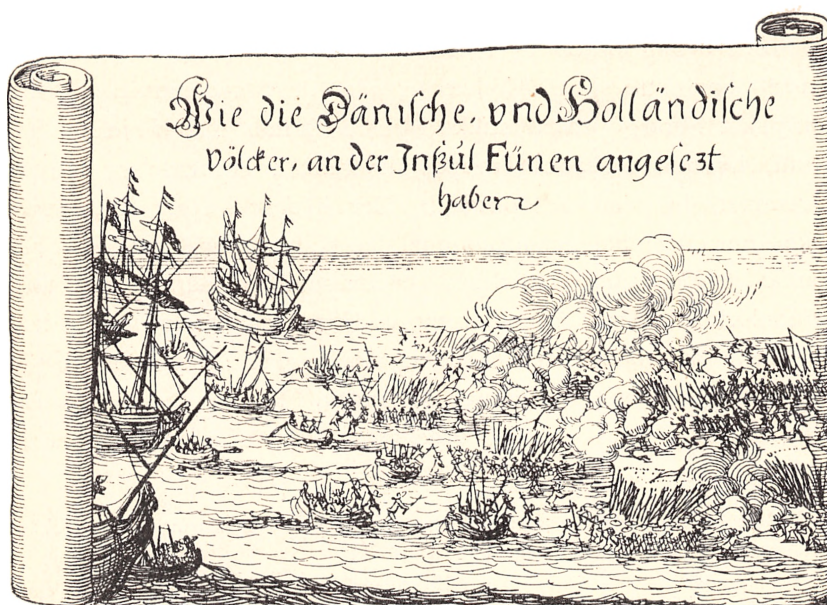 Wie die Dänische, vnd Holländische
Völcker, an der Inßul Fünen angesezt
haben